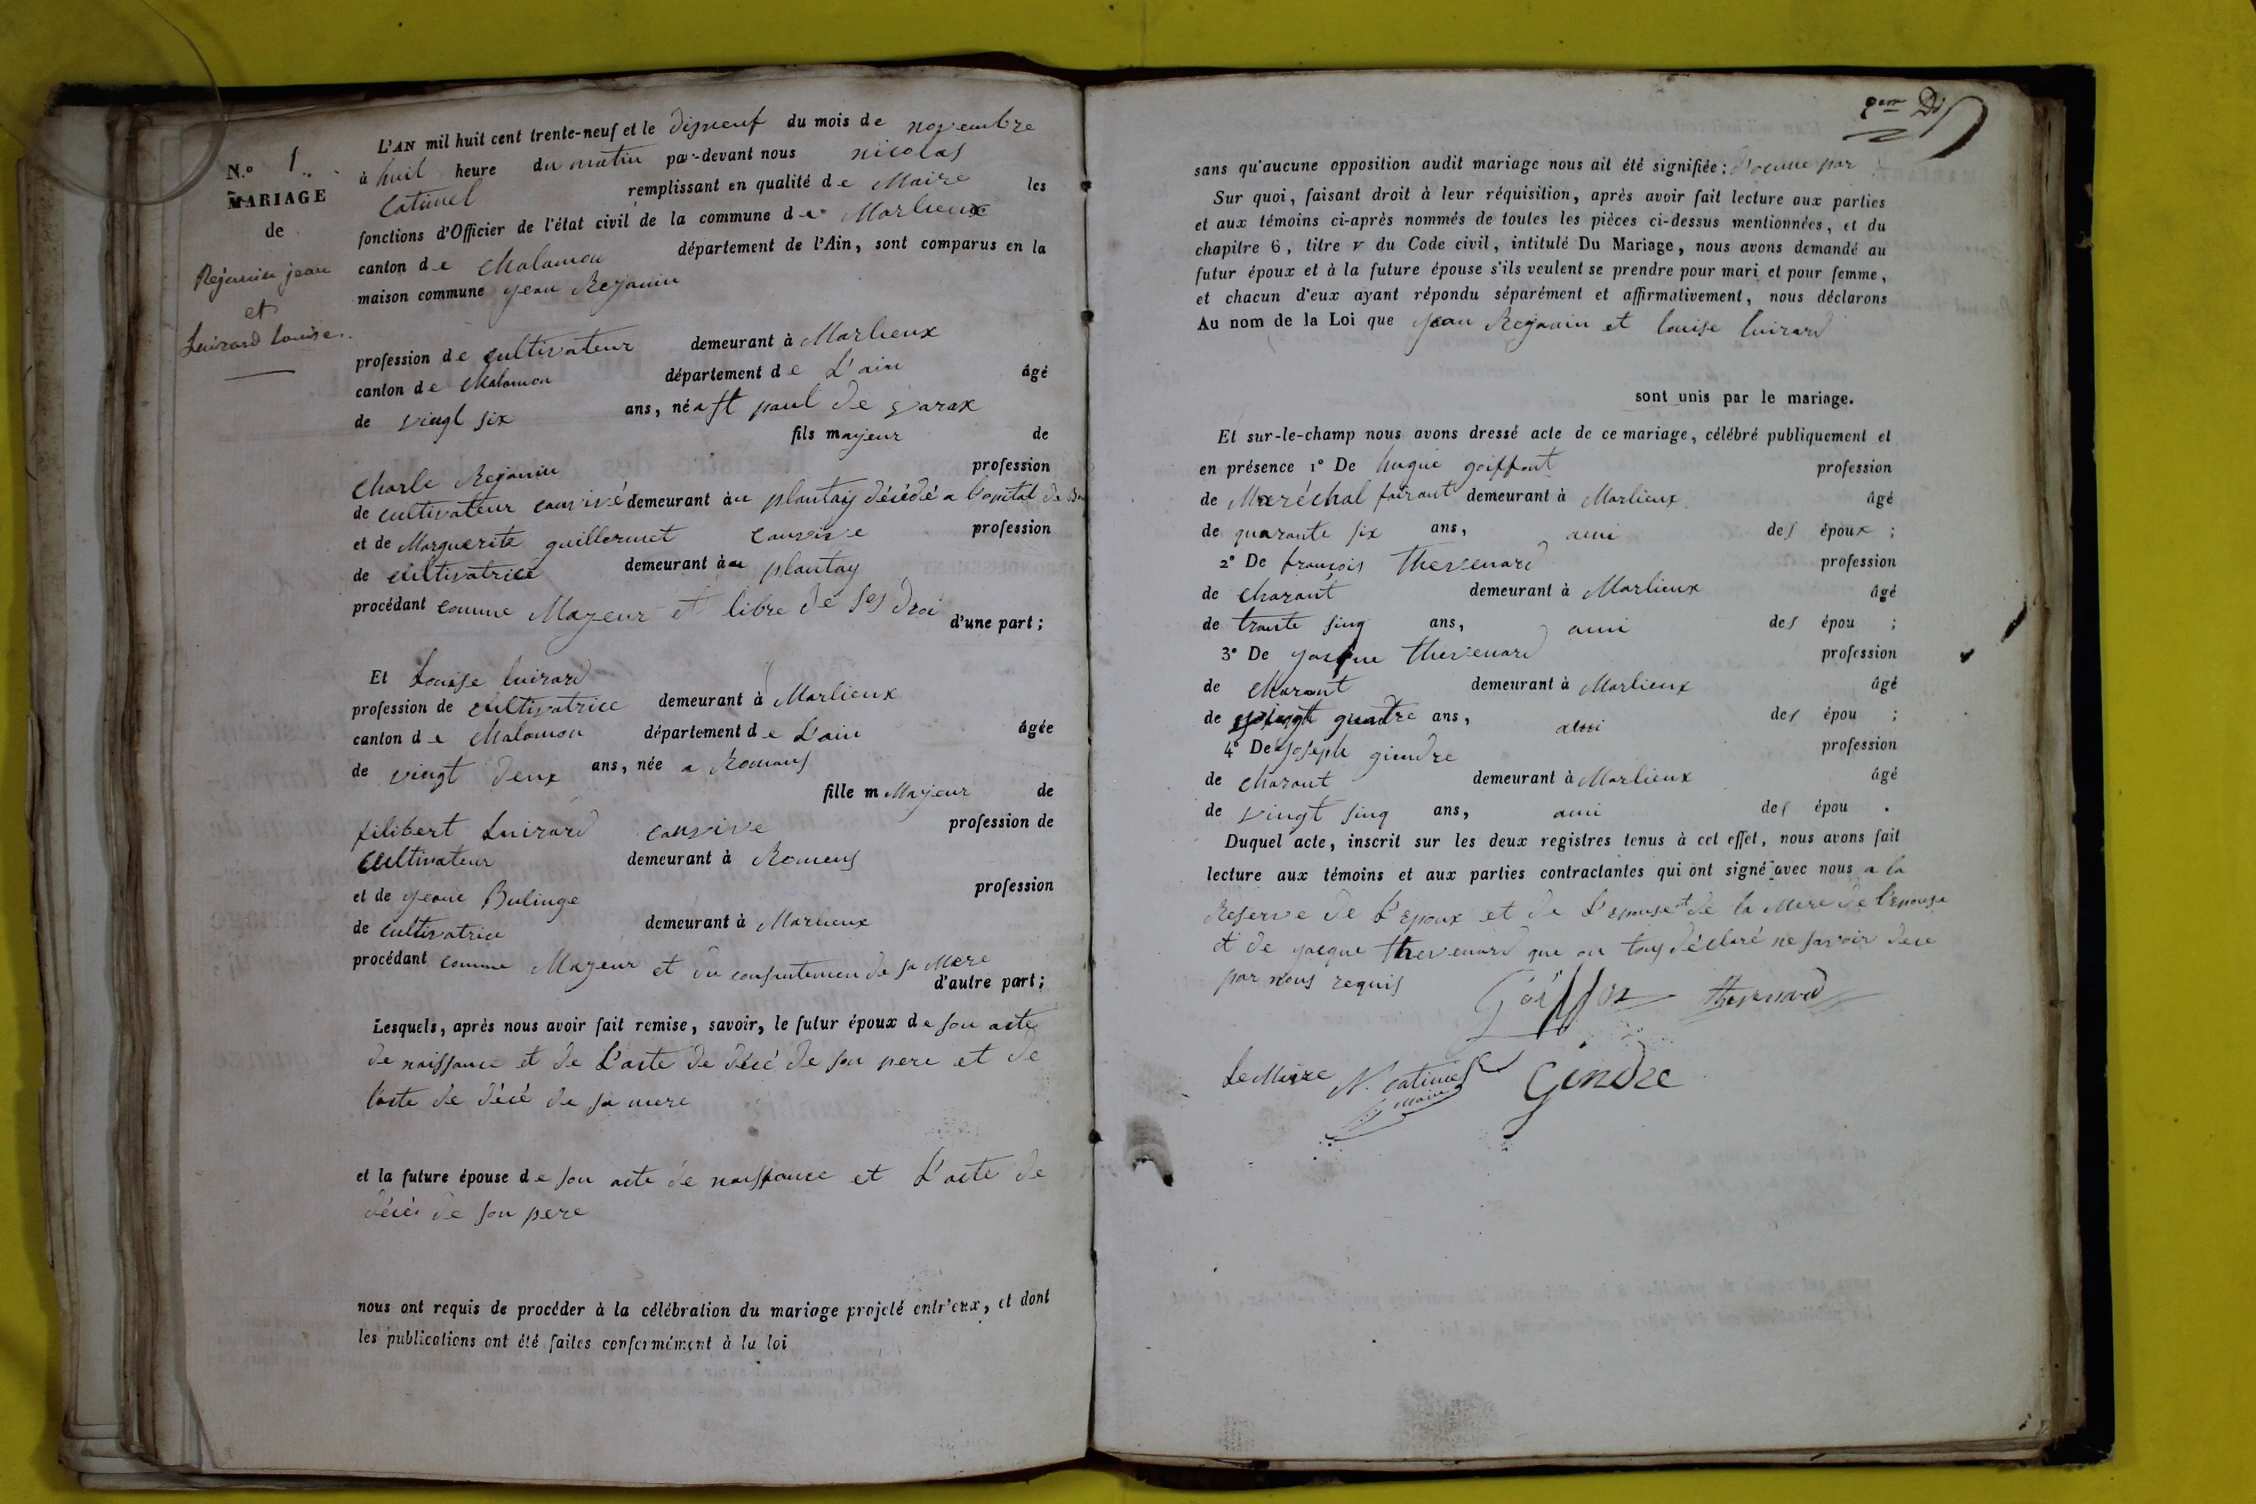 N.o 1.
MARIAGE
de
Rejanin jean
et
Luirard Louise.
L'AN mil huit cent trente-neuf et le disneuf du mois de novembre
à huit heure du matin par-devant nous nicolas
Catimel remplissant en qualité de Maire les
fonctions d'Officier de l'état civil de la commune de Marlieux
canton de Chalamon département de l'Ain, sont comparus en la
maison commune jean Rejanin
profession de cultivateur demeurant à Marlieux
canton de Chalamon département de L'ain âgé
de vingt six ans, né a st paul de varax
fils majeur de
Charle Rejanin profession
de cultivateur demeurant au plantay décédé a l'opital de
et de Marguerite guillermet profession
de cultivatrice demeurant au plantay
procédant comme Majeur et libre de ses droi
d'une part ;
Et Louise luirard
profession de cultivatrice demeurant à Marlieux
canton de Chalamon département de L'ain âgée
de vingt deux ans, née a Romans
fille m Majeur de
filibert Luirard profession de
cultivateur demeurant à Romens
et de jeane Bulinge profession
de cultivatrice demeurant à Marlieux
procédant comme Majeur et du consentemen de sa Mere
d'autre part ;
Lesquels, après nous avoir fait remise, savoir, le futur époux de son acte
de naissance et de L'acte de décé de son pere et de
l'acte de décé de sa mere
et la future épouse de son acte de naissance et L'acte de
décé de son pere
nous ont requis de procéder à la célébration du mariage projeté entr'eux, et dont
les publications ont été faites conformément à la loi
sans qu'aucune opposition audit mariage nous ait été signifiée ; d'ocune par
Sur quoi, faisant droit à leur réquisition, après avoir fait lecture aux parties
et aux témoins ci-après nommés de toutes les pièces ci-dessus mentionnées, et du
chapitre 6, titre v du Code civil, intitulé Du Mariage, nous avons demandé au
futur époux et à la future épouse s'ils veulent se prendre pour mari et pour femme,
et chacun d'eux ayant répondu séparément et affirmativement, nous déclarons
Au nom de la Loi que jean Rejanin et louise luirard
sont unis par le mariage.
Et sur-le-champ nous avons dressé acte de ce mariage, célébré publiquement et
en présence 1° De hugue goiffont profession
de Maréchal fairant demeurant à Marlieux âgé
de quarante six ans, ami des époux ;
2° De françois Thevenard profession
de charont demeurant à Marlieux âgé
de trante sinq ans, ami des épou ;
3° De jacque thevenard profession
de charont demeurant à Marlieux âgé
de vingt quatre ans, ami des épou ;
4° De joseph gindre profession
de charont demeurant à Marlieux âgé
de vingt sinq ans, ami des épou .
Duquel acte, inscrit sur les deux registres tenus à cet effet, nous avons fait
lecture aux témoins et aux parties contractantes qui ont signé avec nous a la
Reserve de L'epoux et de L'epouse et de la Mere de l'epouse
et de jacque thevenard que on tous déclaré ne savoir de ce
par nous requis
Goiffon thevenard
Le Maire N. Catimel Gindre
maire